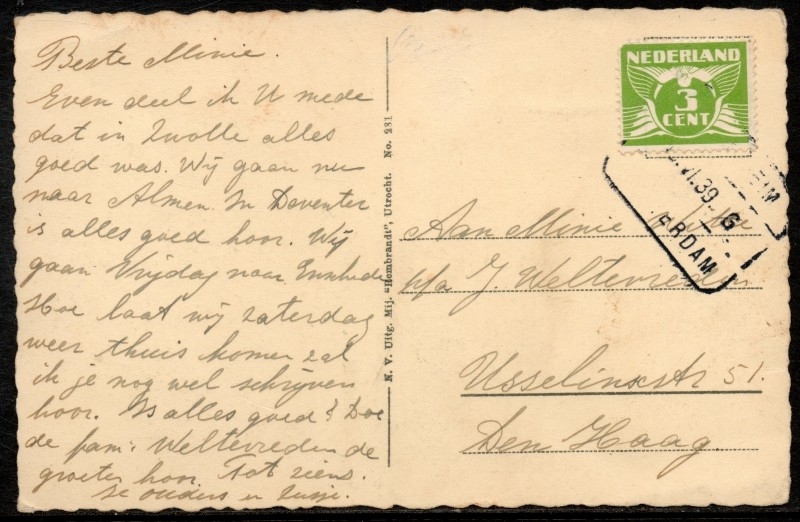 Beste Minie.
Even deel ik U mede
dat in Zwolle alles
goed was. Wij gaan nu
naar Almen. In Deventer
is alles goed hoor. Wij
gaan Vrijdag naar Enschede
Hoe laat wij zaterdag
weer thuis komen zal
ik je nog wel schrijven
hoor. Is alles goed? Doe
de fam. Weltevreden de
groeten hoor. Tot ziens.
Je ouders en Zusje.
N. V. Uitg. Mij. "Rembrandt", Utrecht. No. 281
NEDERLAND
3
CENT
VI.39
G
RDAM
Aan Minie
p/a J. Weltevreden
Usselincxstr 51.
Den Haag.